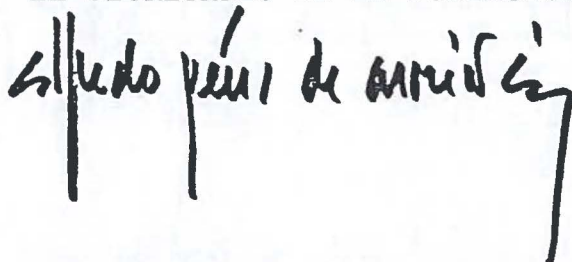 Alfredo Pérez de Armiñán